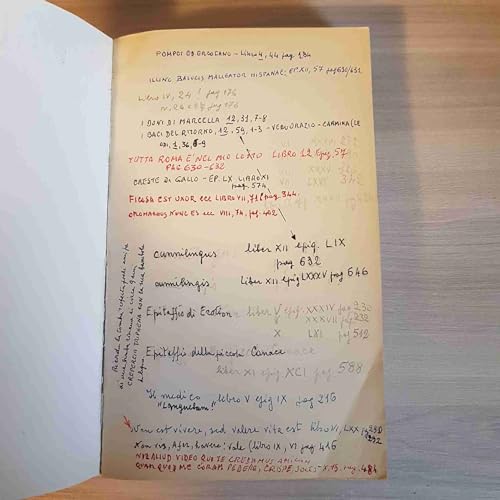 POMPOI OS ORCOCANO - LIBRO 4, 44 pag 184
ILLING BALUCIS MALLEATOR HISPANAE: EP. XII, 57 pag 630/632
Libro IV, 24 ! pag 176
n. 26 e 27 pag 176
I DONI DI MARCELLA 12, 31, 7-8
I BACI DEL RITORNO, 12, 59, 1-3 - VEDI ORAZIO - CARMINA (LE
ODI, 1, 36, 6-9
TUTTA ROMA È NEL MIO LETTO LIBRO 12 Epig. 57
PAG 630-632
CRESTE DI GALLO - EP. LX LIBRO XI
pag. 574
FICOSA EST UXOR ecc LIBRO VII, 71 pag 344.
OPLOMACHUS NUNC ES ecc VIII, 74, pg. 402
cunnilingus liber XII epig. LIX
pag 632
cunnilingis liber XII epig LXXXV pag 646
Epitaffio di Erotion liber V epig XXXIV pag 230
XXXVII pag 232
X LXI pag 512
Epitaffio della piccola Canace
liber XI epig. XCI pag 588
Il medico libro V epig IX pag 216
"Languebam!"
Non est vivere, sed valere vita est libro VI, LXX pg 290
292
Non vis, Afer, havere: vale (libro IX, VI pag 416
NIL ALIUD VIDEO QUO TE CREDAMUS AMICUM
QUAM QUOD ME CORAM PEDERE, CRISPE, SOLES - X, 15, pag. 484